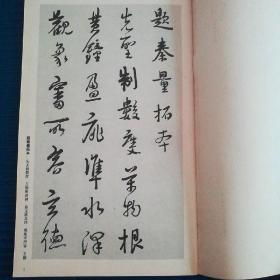 題秦量拓本
先聖制數度萬物根
黃鐘盈庣準水澤
觀象審所容立德